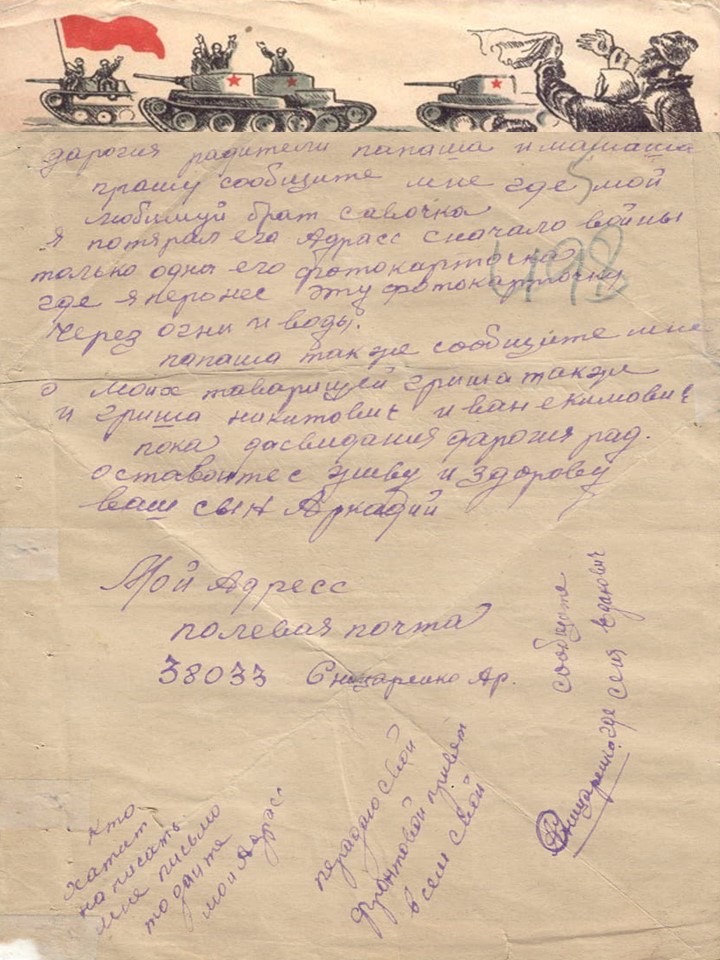 дарогия радители папаша и мамаша
прашу сообщите мне где мой
любимуй брат савочка
я потярал его Адрасс сначало войны
только одна его фотокарточка
где я перонес эту фотокарточку
через огни и воды.
папаша также сообщите мне
о моих таварищей гриша также
и гриша никитович иван екимович
пока дасвидания дарогия рад.
оставойтес живу и здорову
ваш сын Аркадий
Мой Адресс
полевия почта
38033 Снизаренко Ар.
кто
хатит
написать
мне письмо
то дайте
мой Адрас
перадаю свой
фронтовой привят
всем свой
сообщите
где сеня
498